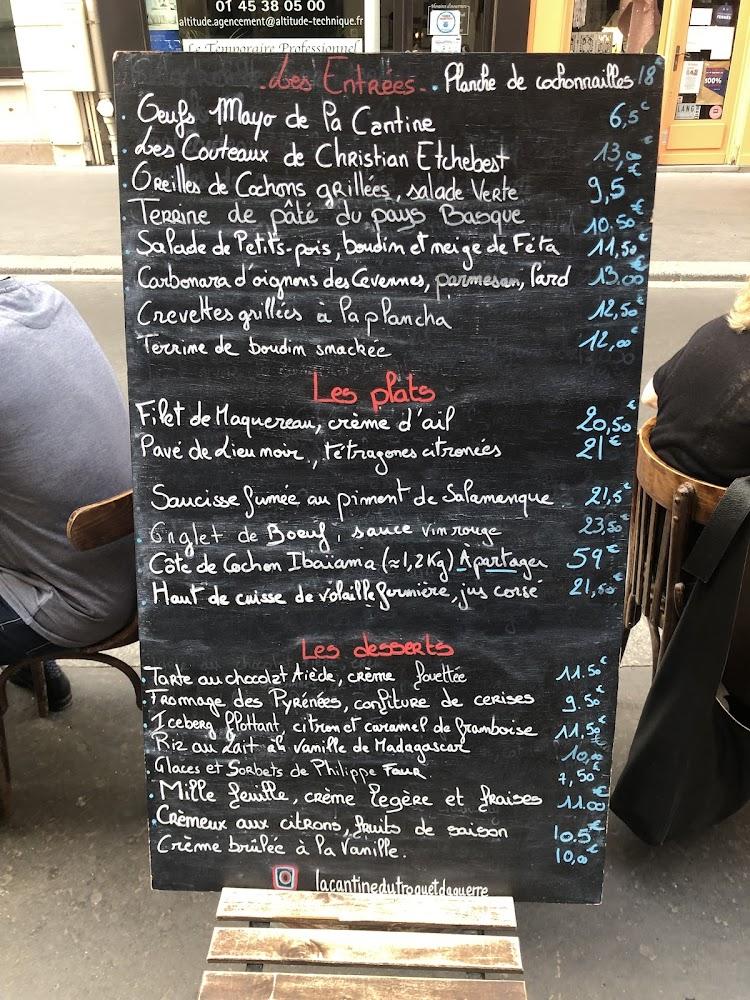 01 45 38 05 00
altitude.agencement@altitude-technique.fr
Le Temporaire Professionnel
.Les Entrées. . Planche de cochonnailles 18€
. Oeufs Mayo de la Cantine 6,5€
. Les Couteaux de Christian Etchebest 13,00€
. Oreilles de Cochons grillées, salade Verte 9,5€
. Terrine de pâté du pays Basque 10.50€
. Salade de Petits-pois, boudin et neige de Féta 11,50€
Carbonara d'oignons des Cevennes, parmesan, lard 13.00€
Crevettes grillées à la plancha 12,50€
Terrine de boudin smackée 12,00€
Les plats
Filet de Maquereau, crème d'ail 20,50€
Pavé de Lieu noir, tétragones citronées 21€
Saucisse fumée au piment de Salamanque 21,5€
. Onglet de Boeuf, sauce vin rouge 23,50€
Côte de Cochon Ibaïama (≈1,2Kg) A partager 59€
. Haut de cuisse de volaille fermière, jus corsé 21,50€
Les desserts
. Tarte au chocolat Aiède, crème fouettée 11.50€
. Fromage des Pyrénées, confiture de cerises 9.50€
. Iceberg flottant, citron et caramel de framboise 11,50€
Riz au Lait à la Vanille de Madagascar 10,00€
. Glaces et Sorbets de Philippe Faur 7,50€
. Mille feuille, crème legère et fraises 11.00€
. Crèmeux aux citrons, fruits de saison 10.5€
Crème brûlée à la Vanille. 10,00€
lacantinedutroquetdaguerre